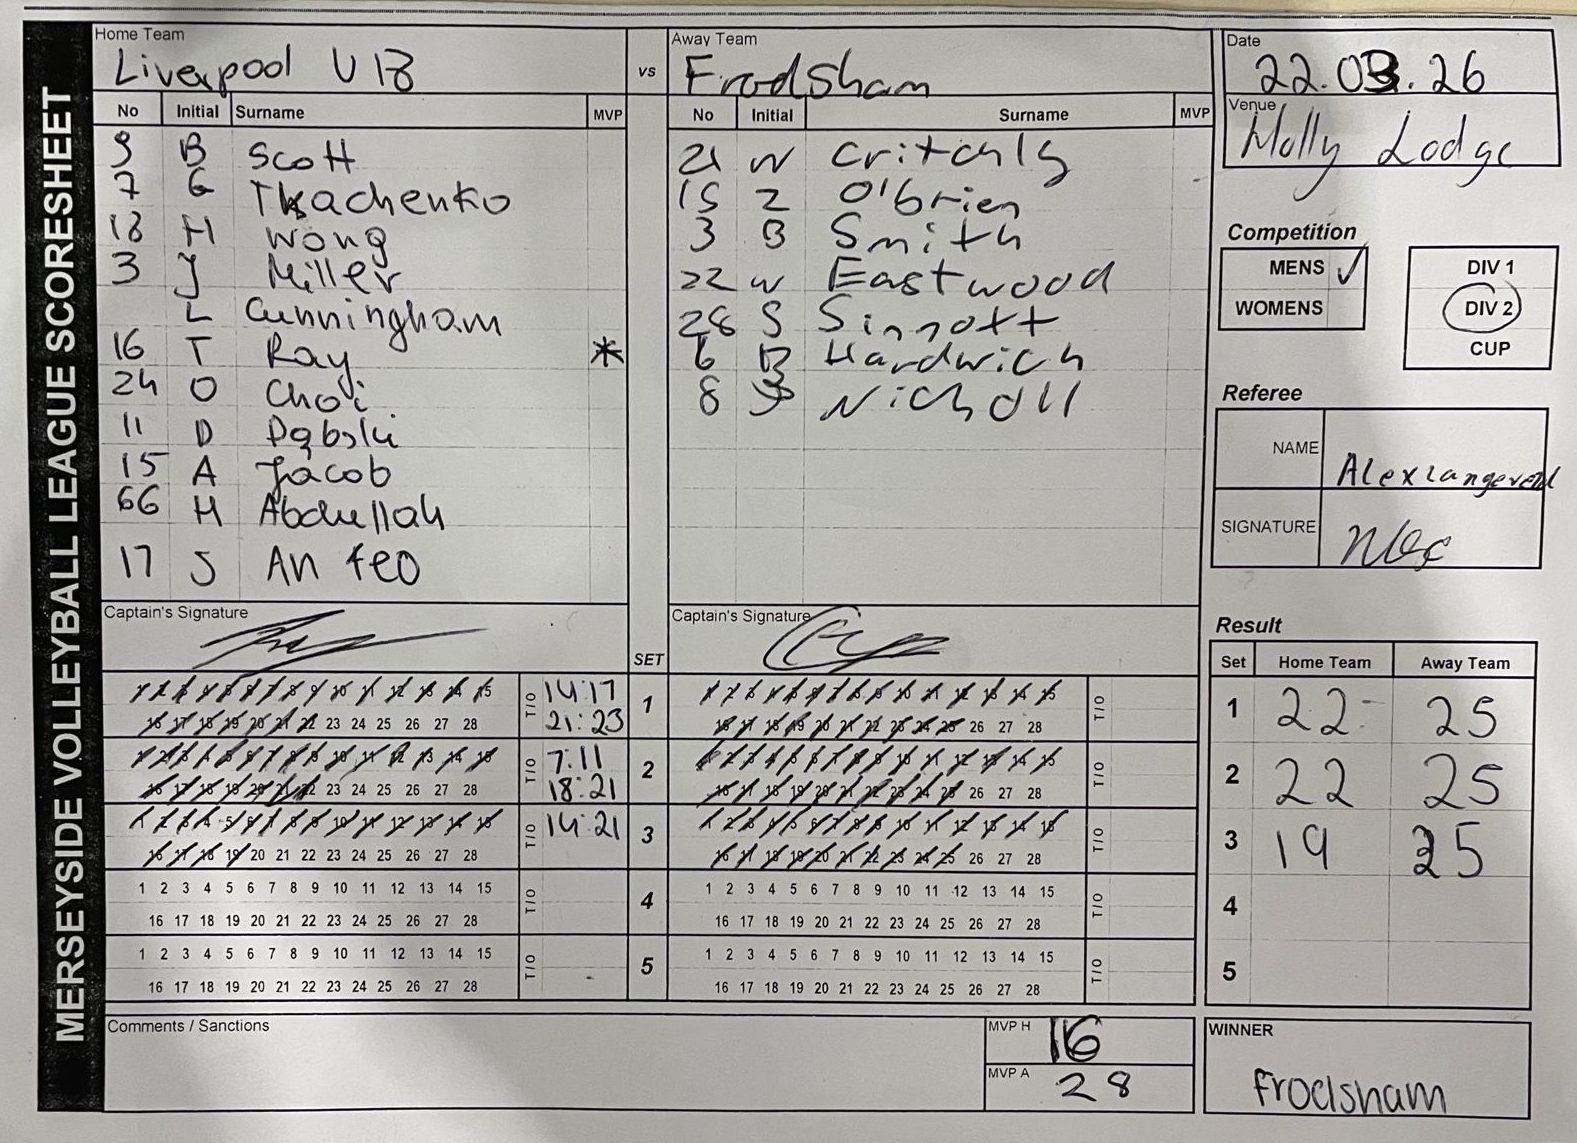 MERSEYSIDE VOLLEYBALL LEAGUE SCORESHEET
Home Team
Liverpool U18
vs
Away Team
Frodsham
Date
22.03.26
Venue
Molly Lodge
No Initial Surname MVP
9 B Scott
7 G Tkachenko
18 H Wong
3 J Miller
L Cunningham
16 T Ray *
24 O Choi
11 D Dąbski
15 A Jacob
66 H Abdullah
17 S An Feo
No Initial Surname MVP
21 W Critchly
15 Z O'brien
3 B Smith
22 W Eastwood
28 S Sinnott
6 B Hardwich
8 Nicholl
Competition
MENS ✓
WOMENS
DIV 1
DIV 2
CUP
Referee
NAME
Alex Langeveld
SIGNATURE
Captain's Signature
Captain's Signature
SET
1 2 3 4 5 6 7 8 9 10 11 12 13 14 15 T/O 14:17
16 17 18 19 20 21 22 23 24 25 26 27 28 21:23
1
1 2 3 4 5 6 7 8 9 10 11 12 13 14 15 T/O
16 17 18 19 20 21 22 23 24 25 26 27 28
1 2 3 4 5 6 7 8 9 10 11 12 13 14 15 T/O 7:11
16 17 18 19 20 21 22 23 24 25 26 27 28 18:21
2
1 2 3 4 5 6 7 8 9 10 11 12 13 14 15 T/O
16 17 18 19 20 21 22 23 24 25 26 27 28
1 2 3 4 5 6 7 8 9 10 11 12 13 14 15 T/O 14:21
16 17 18 19 20 21 22 23 24 25 26 27 28
3
1 2 3 4 5 6 7 8 9 10 11 12 13 14 15 T/O
16 17 18 19 20 21 22 23 24 25 26 27 28
1 2 3 4 5 6 7 8 9 10 11 12 13 14 15 T/O
16 17 18 19 20 21 22 23 24 25 26 27 28
4
1 2 3 4 5 6 7 8 9 10 11 12 13 14 15 T/O
16 17 18 19 20 21 22 23 24 25 26 27 28
1 2 3 4 5 6 7 8 9 10 11 12 13 14 15 T/O
16 17 18 19 20 21 22 23 24 25 26 27 28
5
1 2 3 4 5 6 7 8 9 10 11 12 13 14 15 T/O
16 17 18 19 20 21 22 23 24 25 26 27 28
Result
Set Home Team Away Team
1 22 25
2 22 25
3 19 25
4
5
Comments / Sanctions
MVP H 16
MVP A 28
WINNER
Frodsham